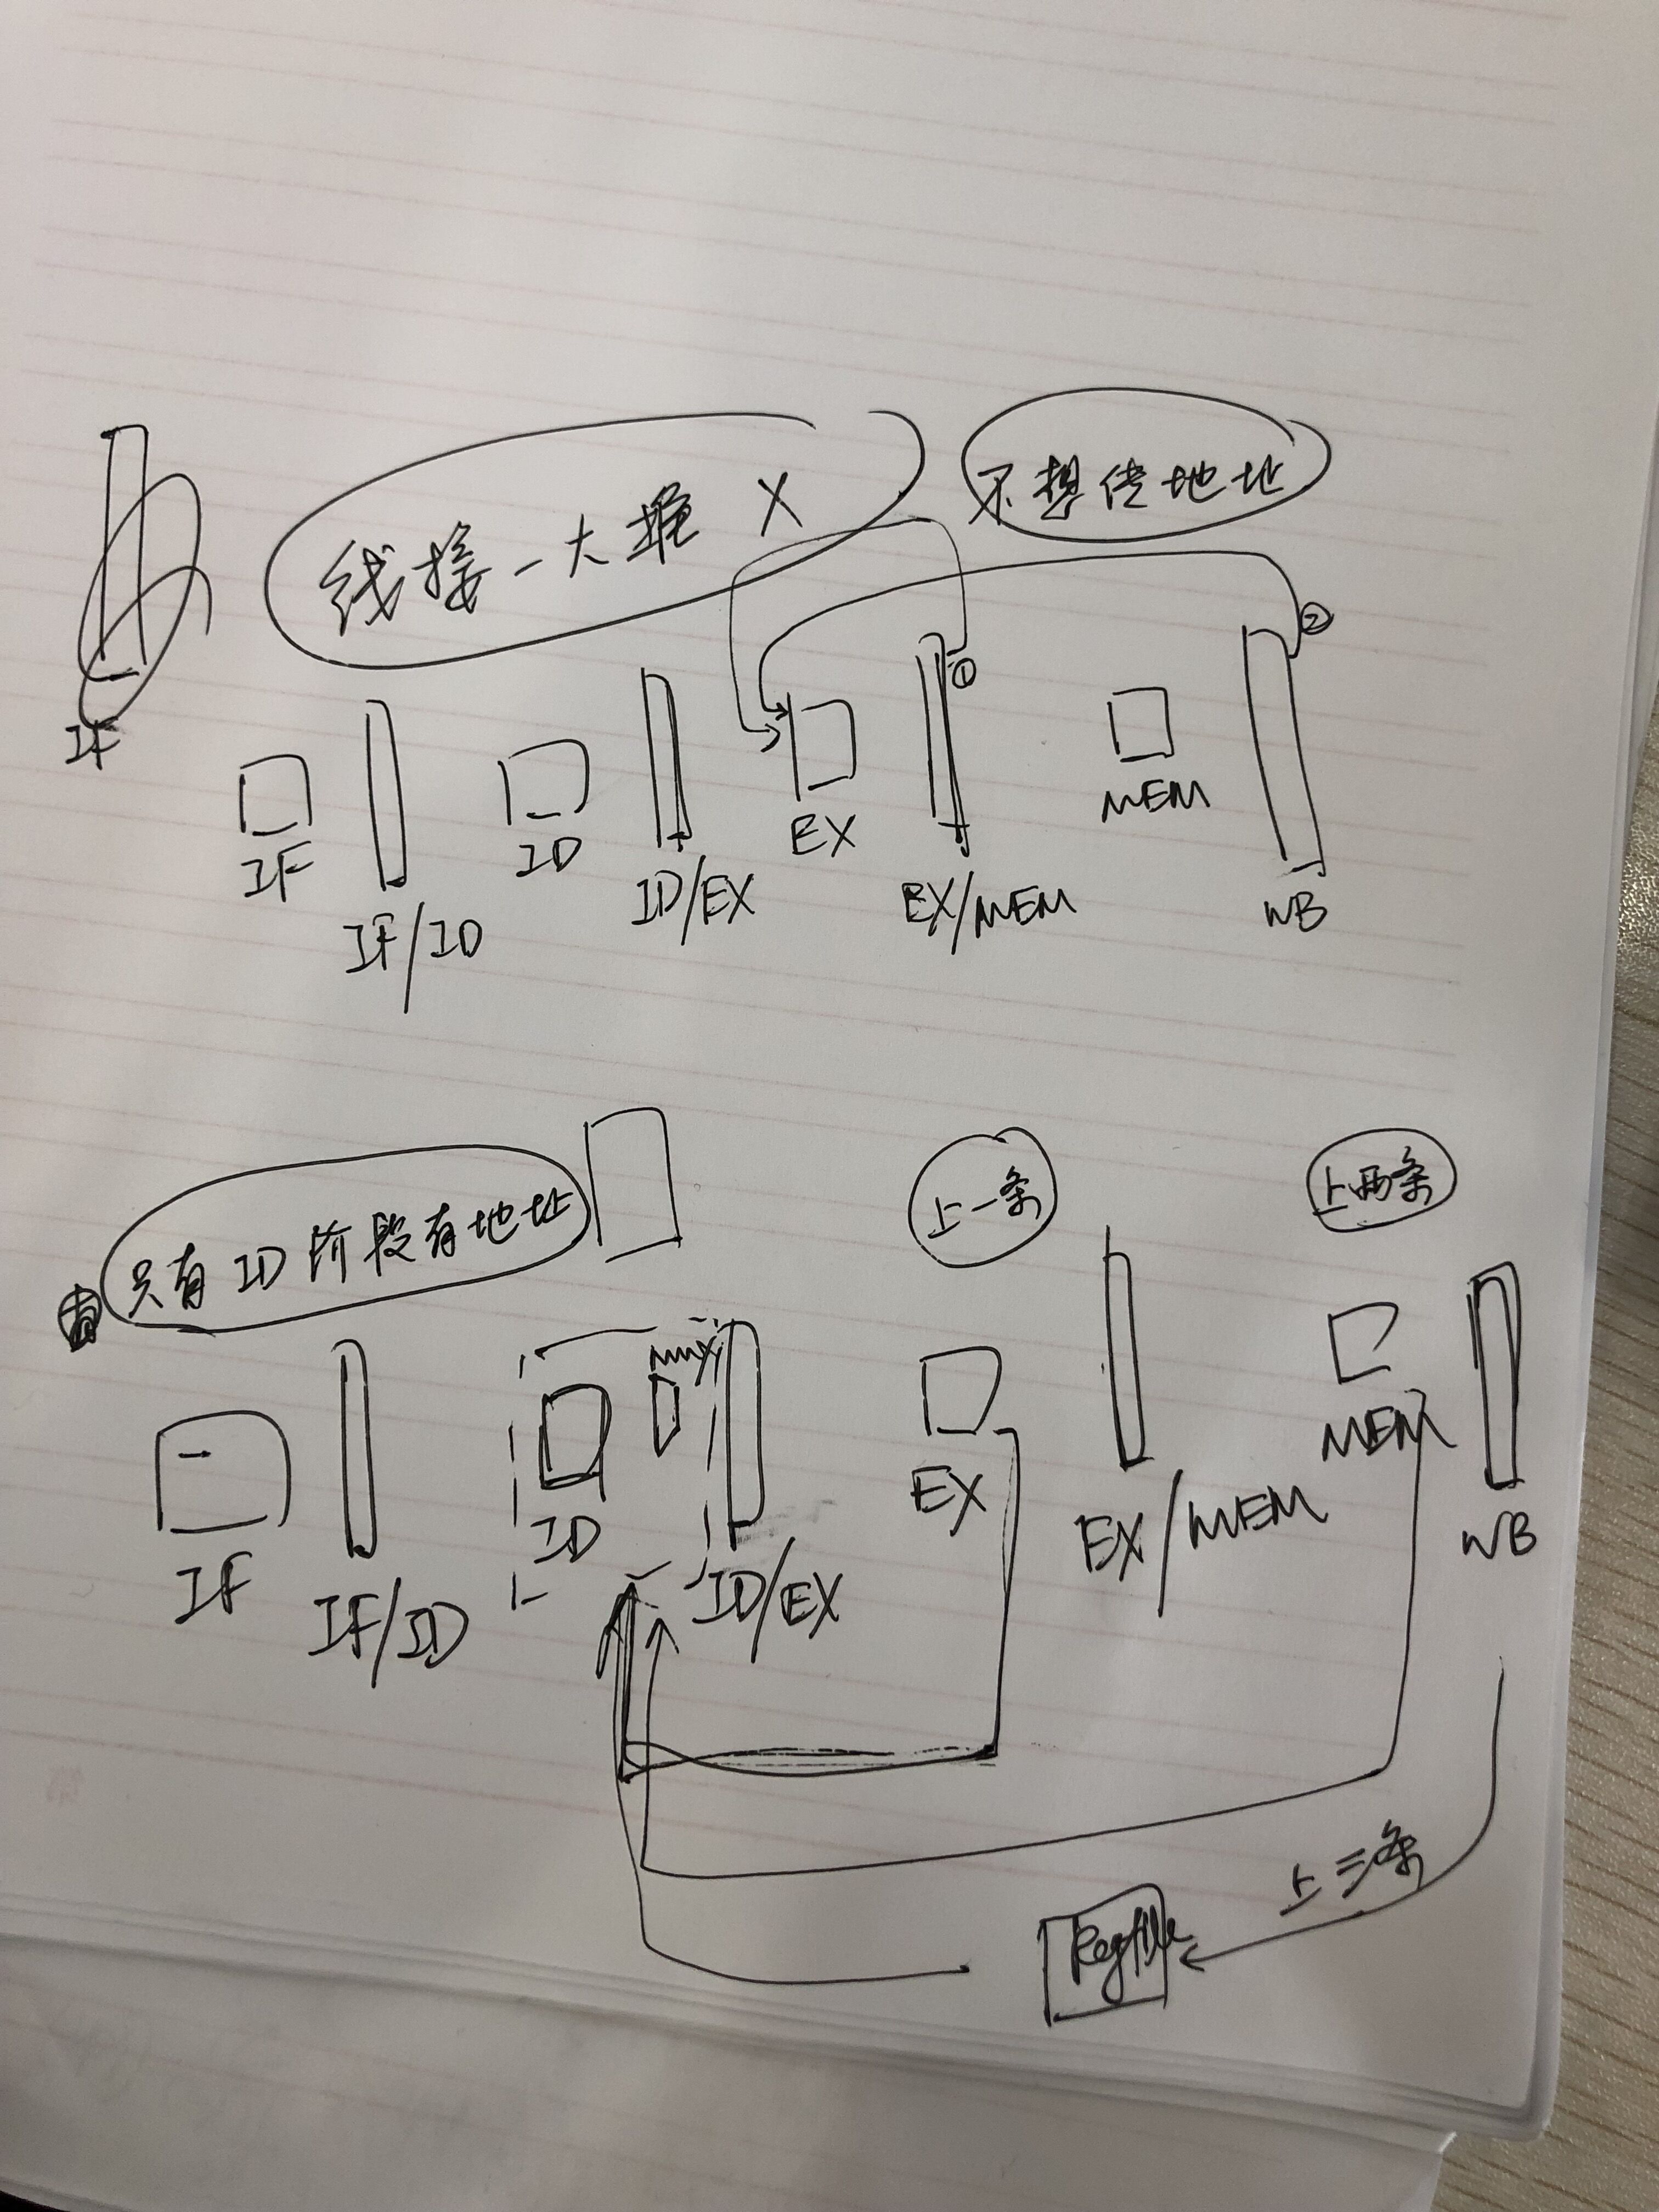 线接一大堆 X
不想传地址
①
②
IF
IF
IF/ID
ID
ID/EX
EX
EX/MEM
MEM
WB
只有ID阶段有地址
上一条
上两条
mux
IF
IF/ID
ID
ID/EX
EX
EX/MEM
MEM
WB
上三条
Regfile